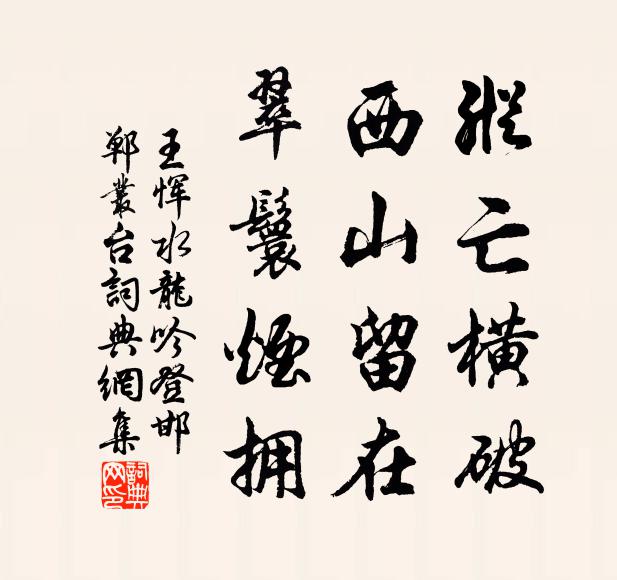 縱亡橫破
西山留在
翠鬟煙拥
王恽水龍吟登邯
鄲叢台詞典網集
詞典
网印